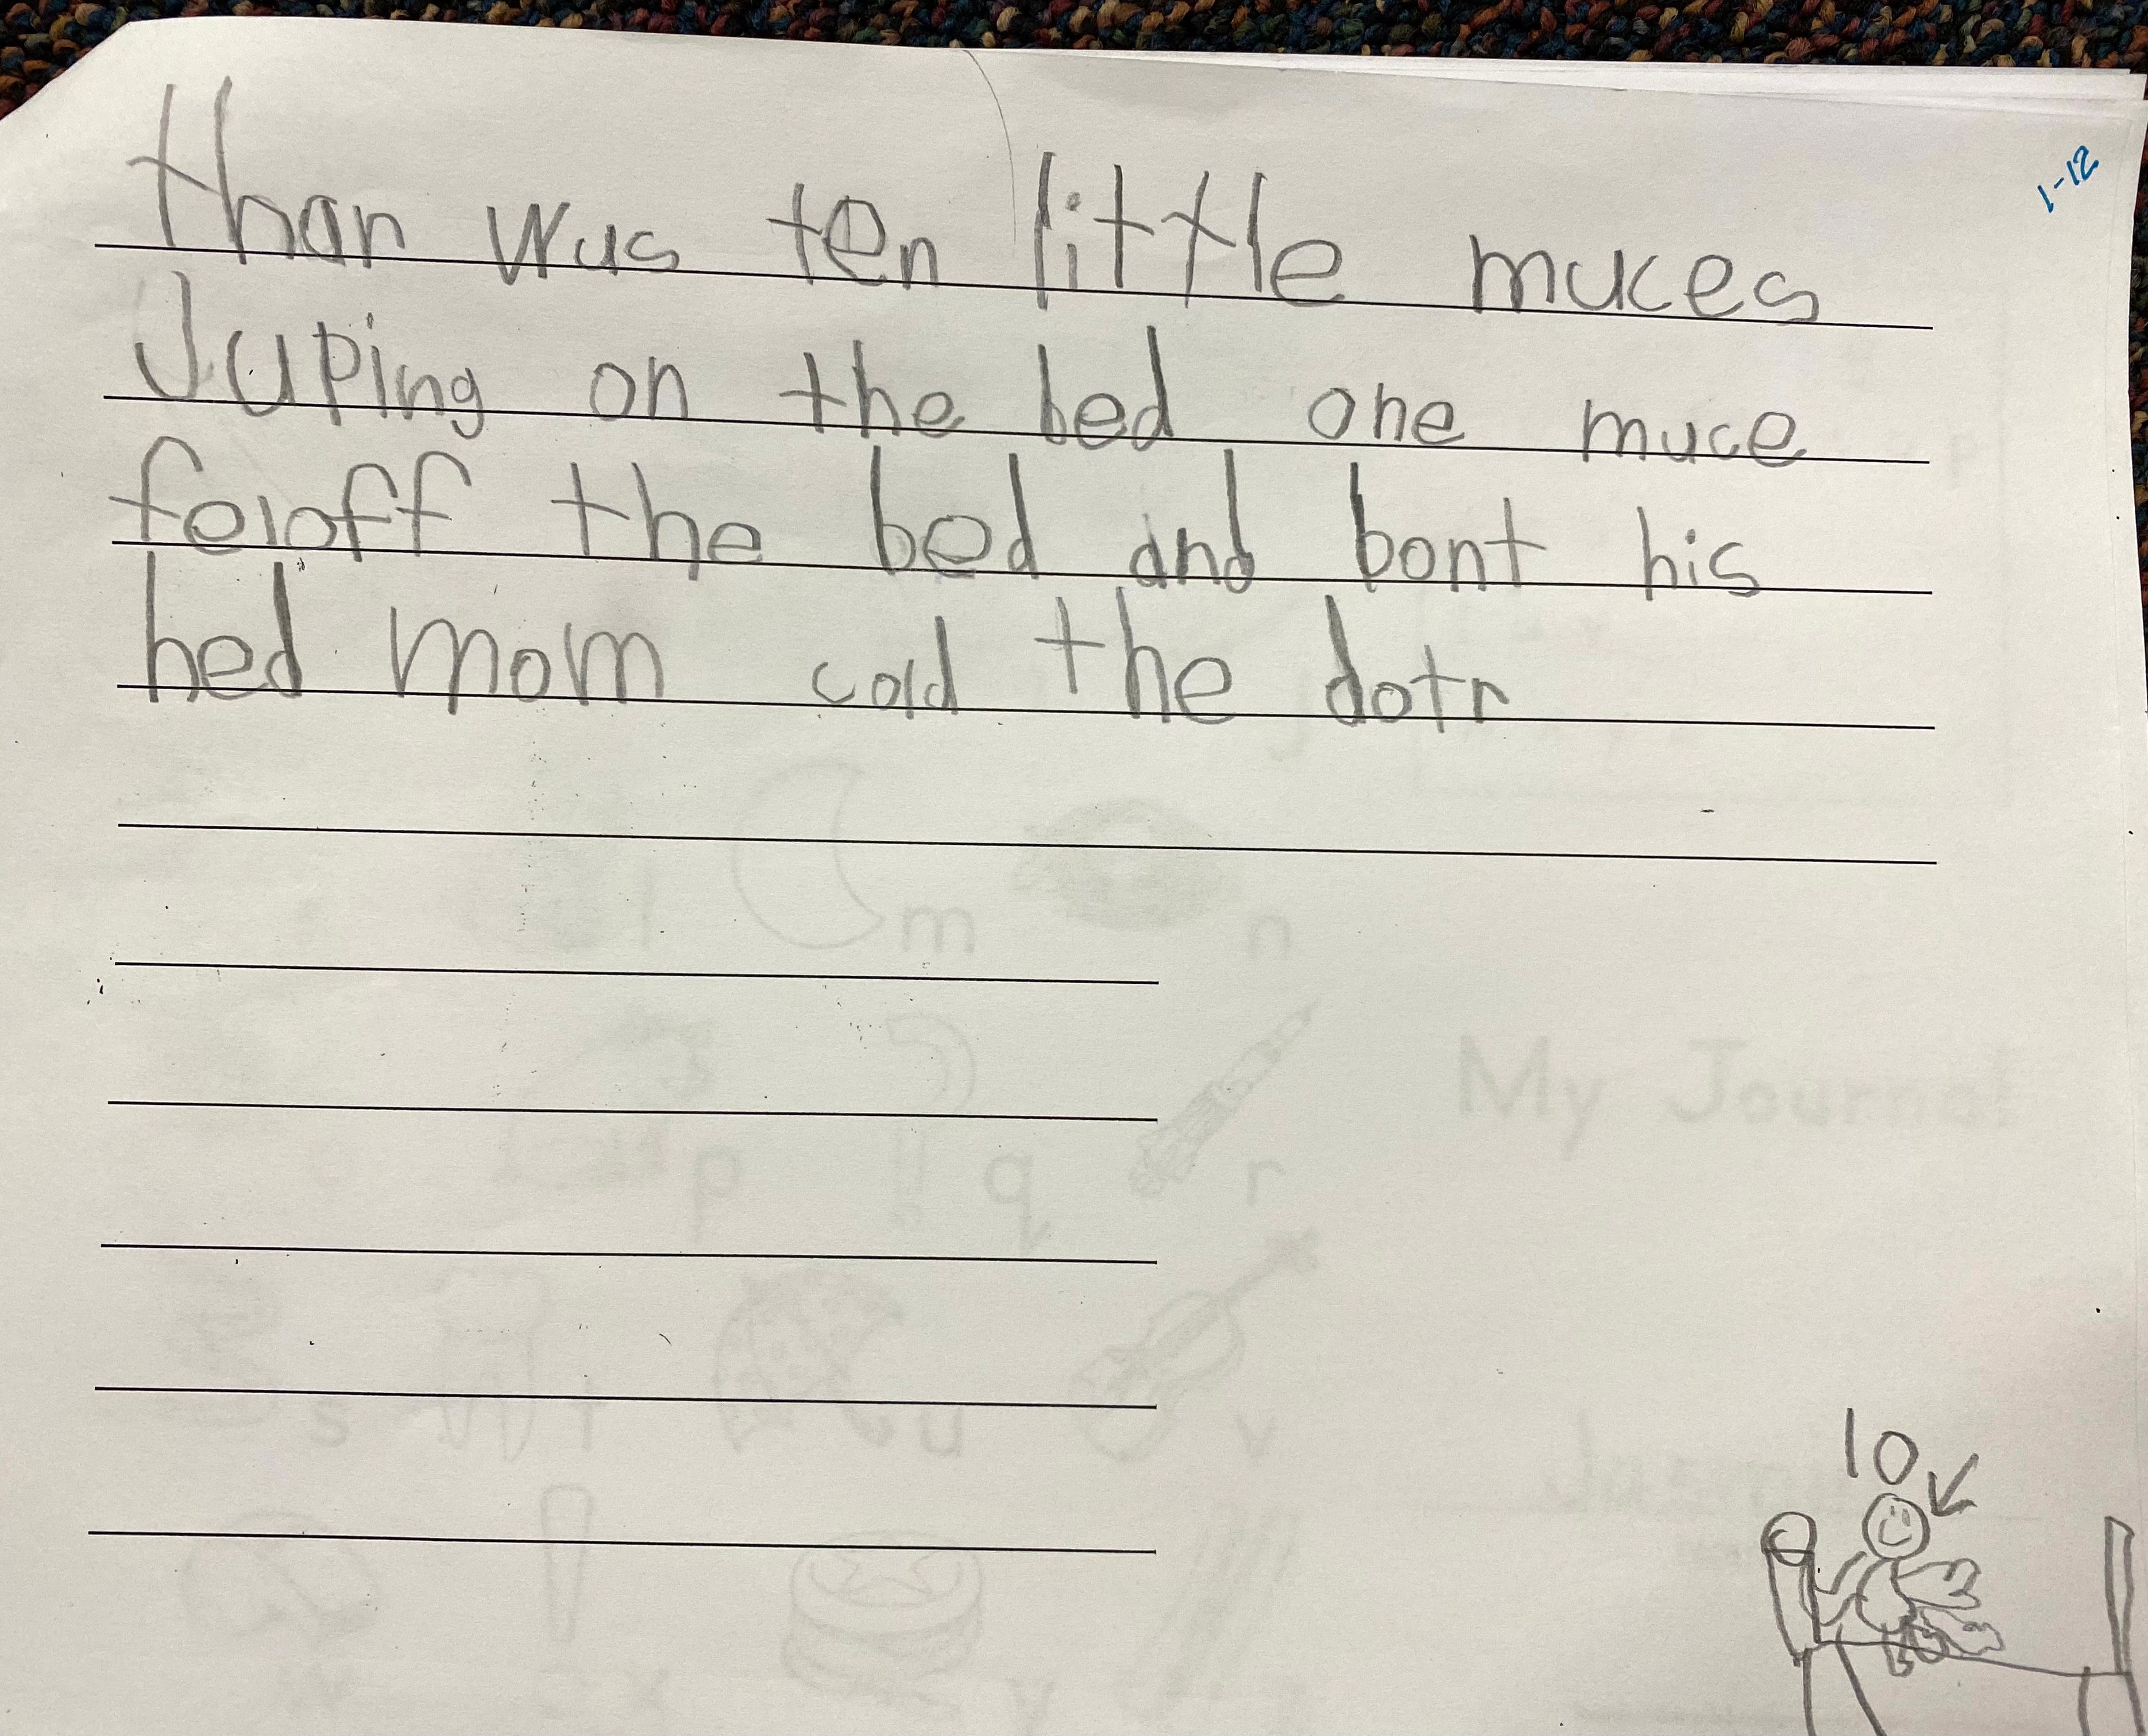 1-12
than wus ten little muces
Juping on the bed one muce
feloff the bed and bont his
hed mom cold the dotr
m n
My Journal
p q r
s t u v
x y
10